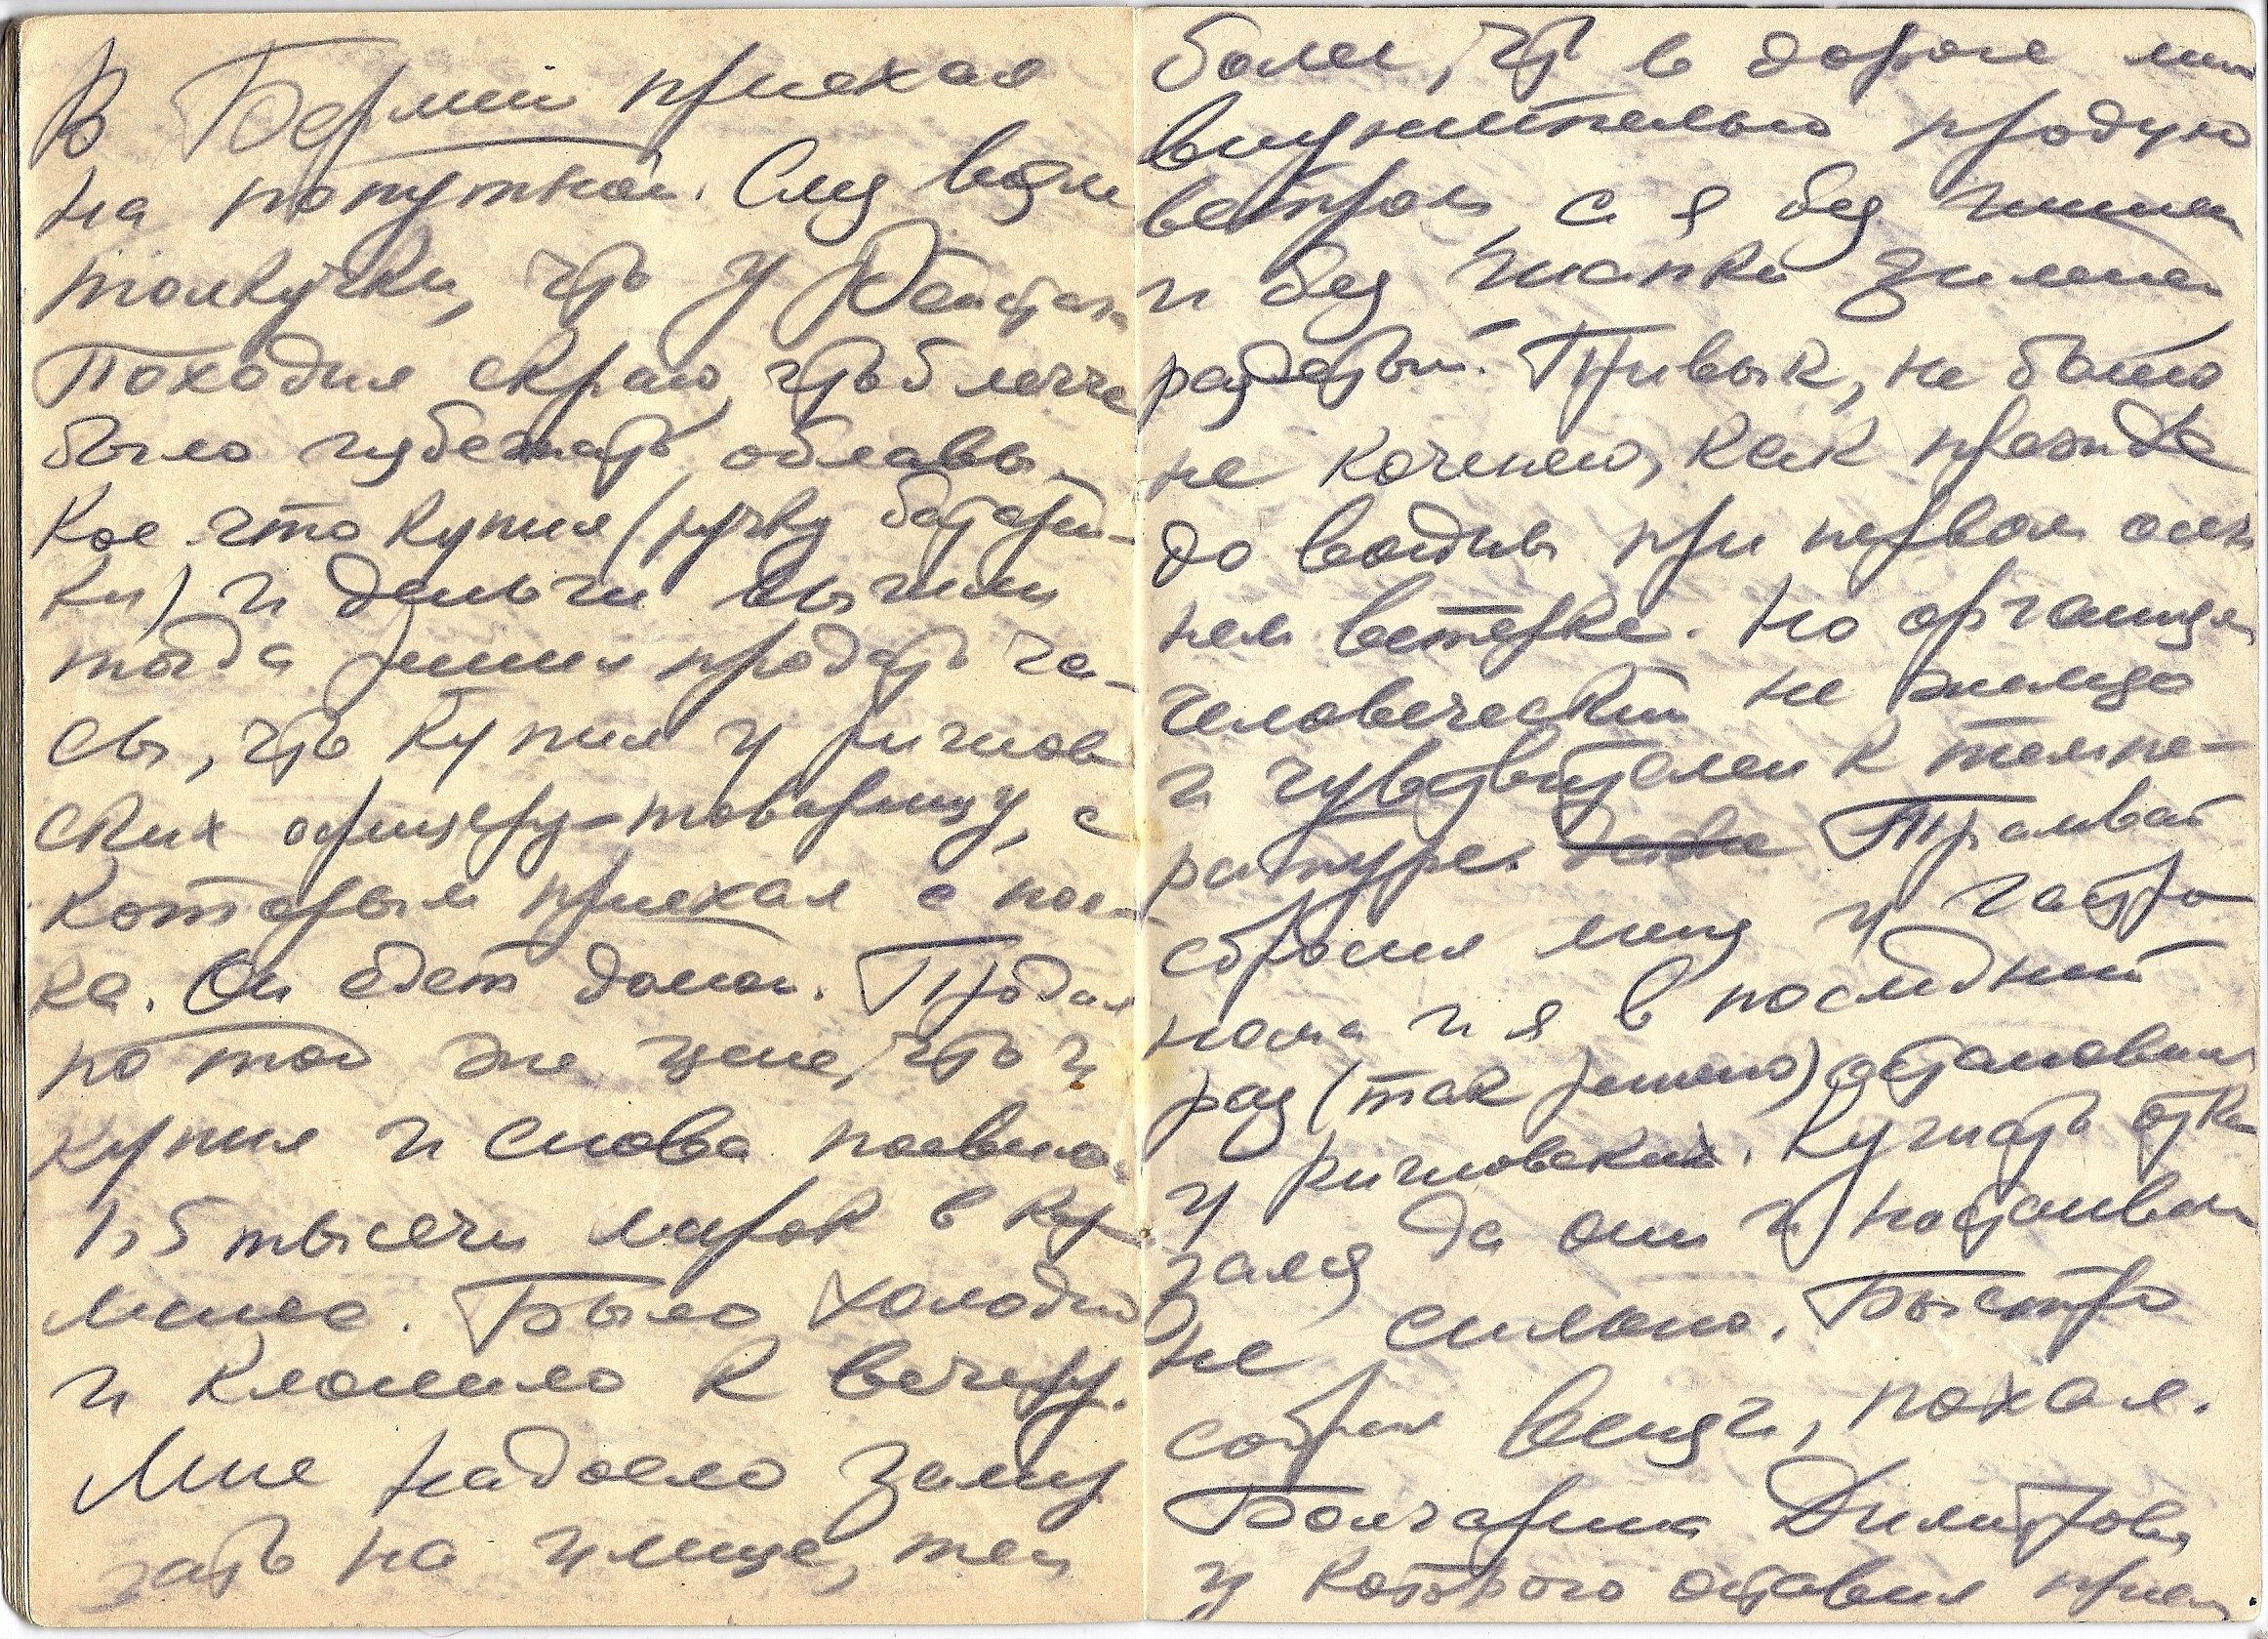 В Берлин приехал
на попутной. Слез возле
толкучки, что у Рейхстаг.
Походил скраю, чтоб легче
было избежать облавы.
Кое что купил (ручку батарей-
ки) и деньги вышли
тогда решил продать ча-
сы, что купил у ригмов
ских офицеру-товарищу, с
которым приехал с пол-
ка. Он едет домой. Продал
по той же цене, что и
купил и снова появилось
1,5 тысячи марок в кар
мане. Было холодно
и клонило к вечеру.
Мне надоело замер
зать на улице, тем
более, что в дороге мне
внушительно продуло
ветром, а я без шинели
и без шапки зимней
раздетый. Привык, не было
не коченею, как прежде
до войны при первом осен
нем ветерке. Но организм
человеческий не железо
и чувствителен к темпе-
ратуре. Трамвай
сбросил меня у гастро
нома и я в последний
раз (так решено) остановился
у ригмовских. Кушать отка
зался да они и настаивали
не сильно. Быстро
собрал вещи, поехал.
Болгарина Димитрова
у которого оставил прием